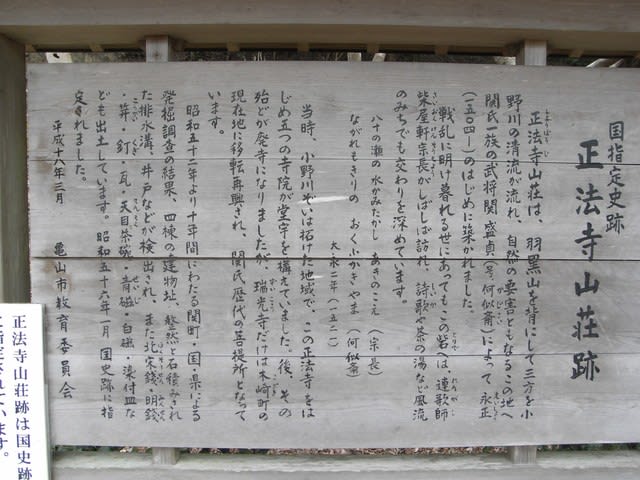 国指定史跡
正法寺山荘跡
正法寺山荘は、羽黒山を背にして三方を小
野川の清流が流れ、自然の要害ともなるこの地へ
関氏一族の武将関盛貞(号、何似斎)によって永正
(一五〇四―)のはじめに築かれました。
戦乱に明け暮れる世にあってもこの砦へは、連歌師
柴屋軒宗長がしばしば訪れ、詩歌や茶の湯など風流
のみちでも交わりを深めています。
八十の瀬の水かみたかし あきのこえ (宗長)
ながれもきりの おくふかきやま (何似斎)
大永二年(一五二二)
当時、小野川ぞいは拓けた地域で、この正法寺をは
じめ五つの寺院が堂宇を構えていました。後、その
殆どが廃寺になりましたが、瑞光寺だけは木崎町の
現在地に移転再興され、関氏歴代の菩提所となって
います。
昭和五十二年より十年間にわたる関町・国・県による
発掘調査の結果、四棟の建物址、整然と石積みされ
た排水溝、井戸などが検出され、また北宋銭、明銭
・笄・釘・瓦・天目茶碗・青磁・白磁・染付皿な
ども出土しています。昭和五十六年一月 国史跡に指
定されました。
平成十八年三月 亀山市教育委員会
正法寺山荘跡は国史跡
に指定されています。